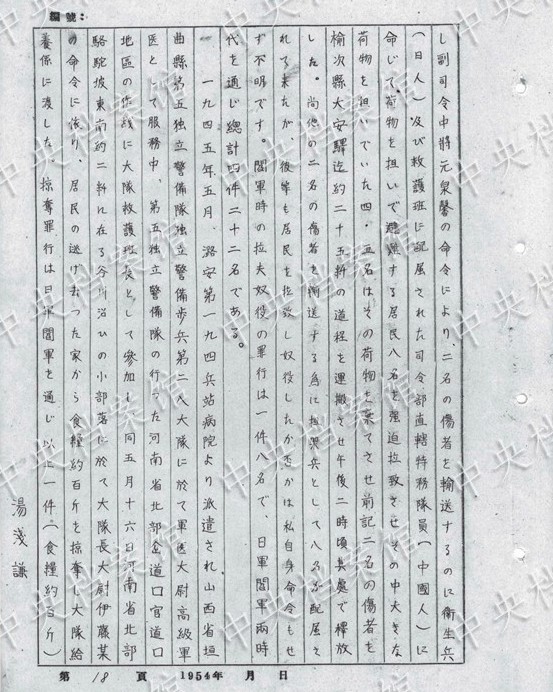 編號：
し副司令中將元泉馨の命令により、二名の傷者を輸送するのに衛生兵
（日人）及び救護班に配属された司令部直轄特務隊員（中國人）に
命じて、荷物を担いで避難する居民八名を强迫拉致させその中大きな
荷物を担いでいた四・五名はその荷物を棄てさせ前記二名の傷者を
榆次縣大安驛迄約二十五粁の道程を運搬させ午後二時頃其處で釋放
した。尚他の二名の傷者を輸送する為に担架兵として八名が配属さ
れて来たが、彼等も居民を拉致し奴役したか否かは私自身命令もせ
ず不明です。閻軍時の拉夫奴役の罪行は一件八名で、日軍閻軍兩時
代を通じ總計四件二十二名である。
一九四五年五月、潞安第一九四兵站病院より派遣され山西省垣
曲縣第五独立警備隊独立警備歩兵第二八大隊に於て軍医大尉高級軍
医として服務中、第五独立警備隊の行った河南省北部官道口
地區の作戦に大隊救護班長として參加し、同五月十六日河南省北部
駱駝坡東南約二粁に在る谷川沿ひの小部落に於て大隊長大尉伊藤某
の命令に依り、居民の逃げ去った家から食糧約百斤を掠奪し大隊給
養係に渡した。掠奪罪行は日軍閻軍を通じ以上一件（食糧約百斤）
湯淺謙
第 18 頁 1954年 月 日
中央档案馆